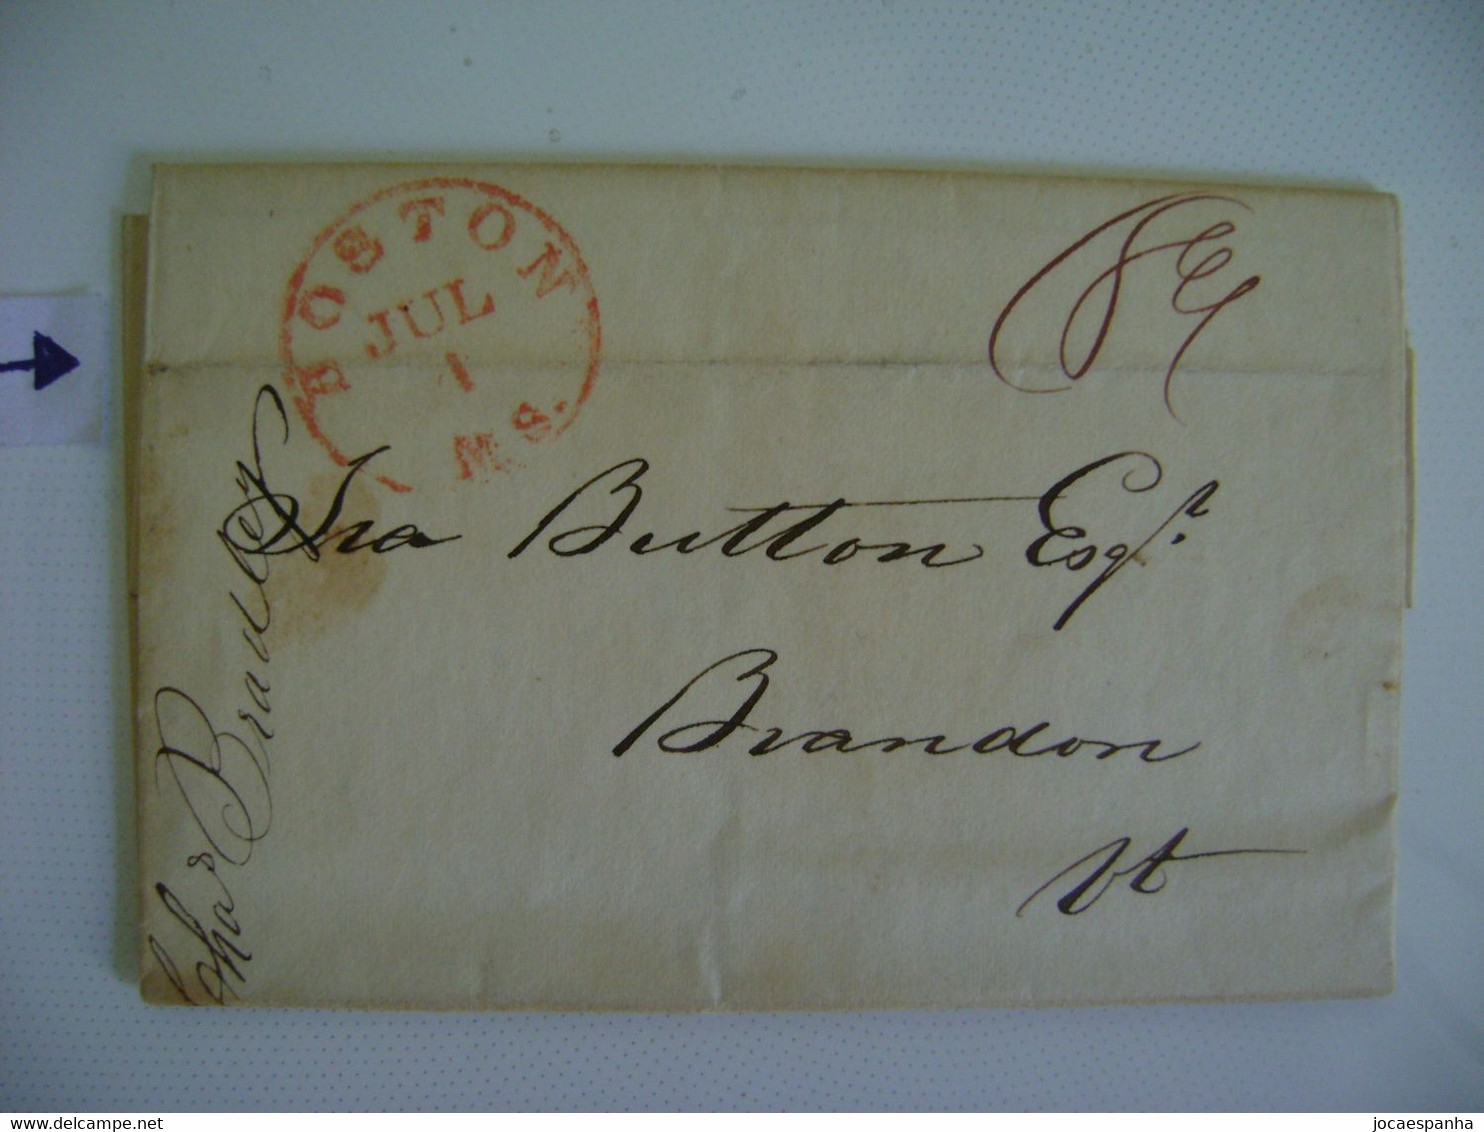 BOSTON
JUL
1
MS.
Ira Button Esqr.
Brandon
Vt
Chas Bradley
delcampe.net
jocaespanha